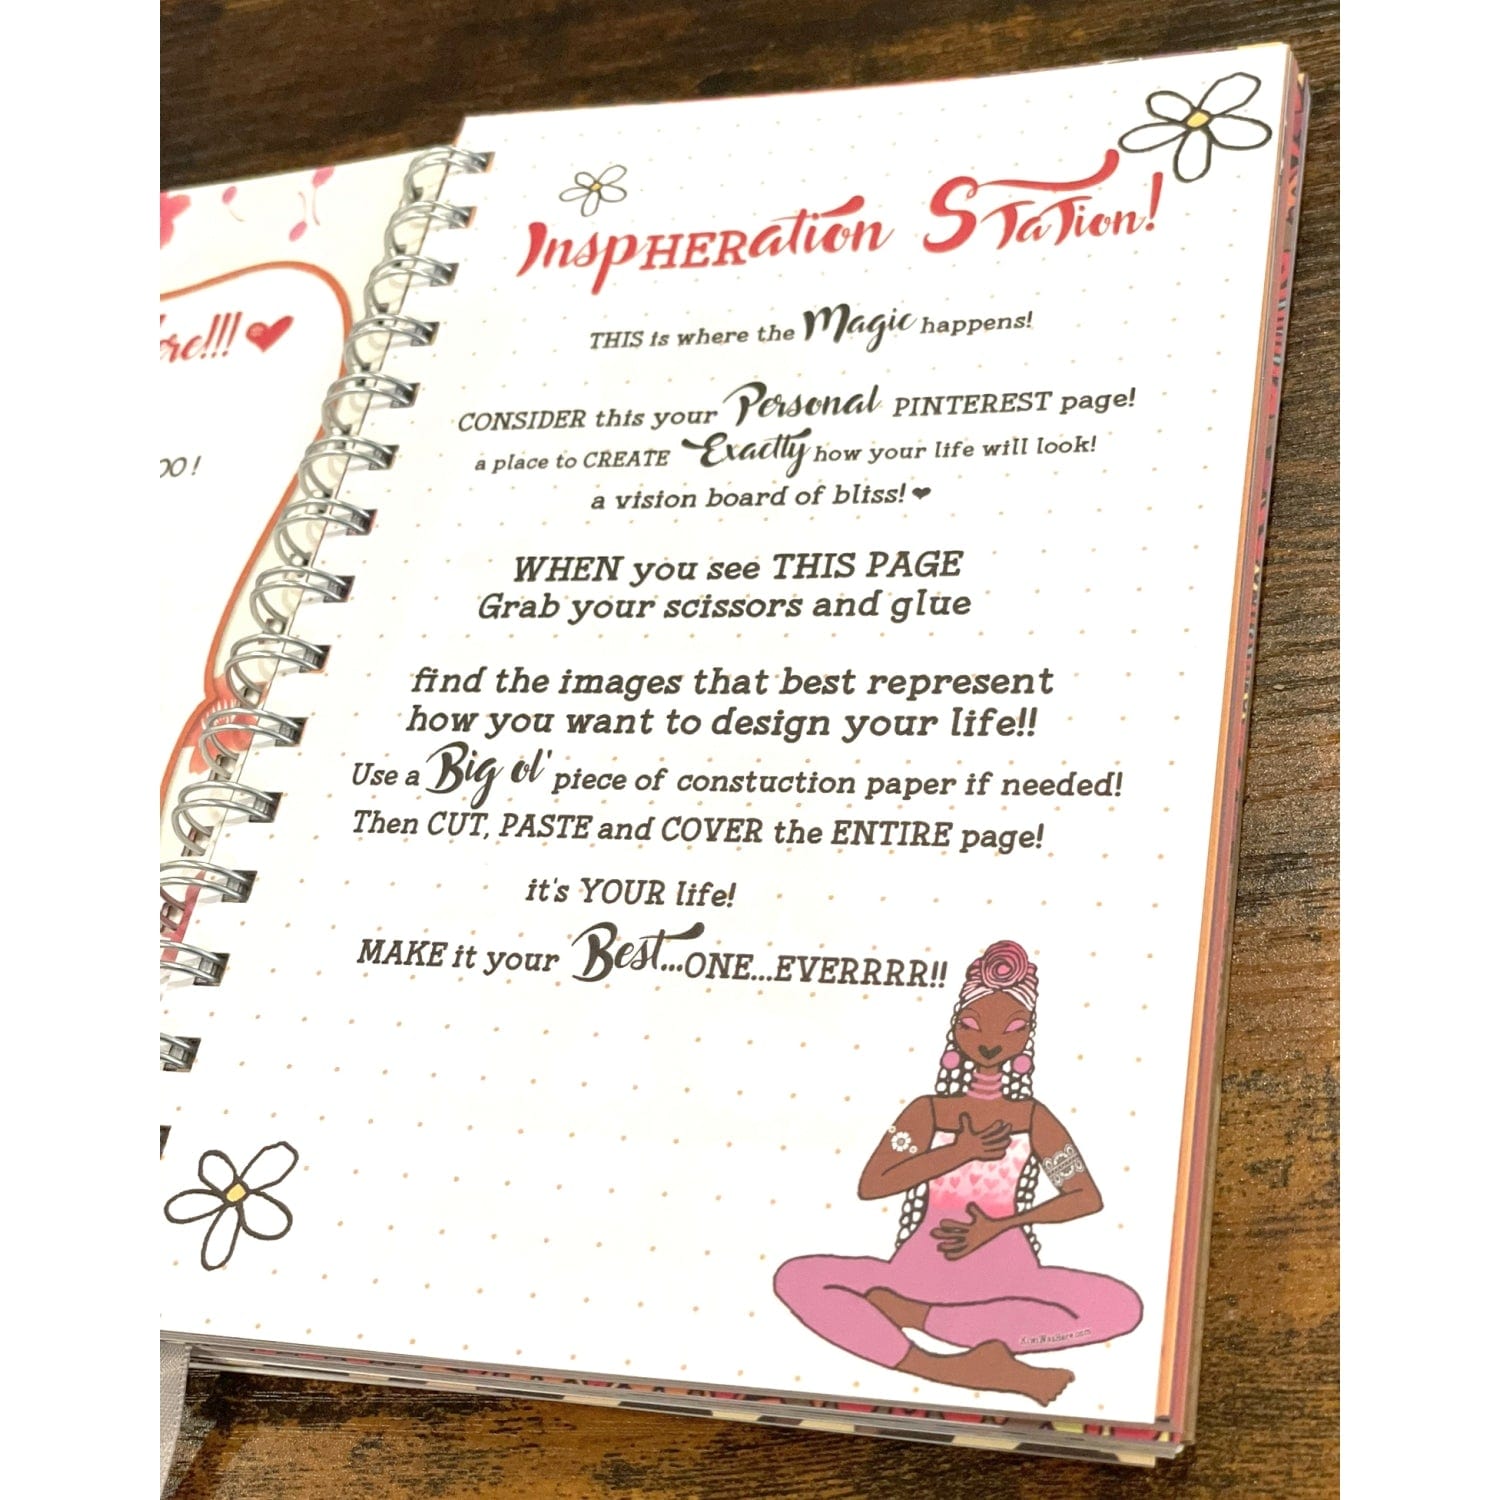 InspHERation Station!
THIS is where the Magic happens!
CONSIDER this your Personal PINTEREST page!
a place to CREATE Exactly how your life will look!
a vision board of bliss!
WHEN you see THIS PAGE
Grab your scissors and glue
find the images that best represent
how you want to design your life!!
Use a Big ol' piece of constuction paper if needed!
Then CUT, PASTE and COVER the ENTIRE page!
it's YOUR life!
MAKE it your Best...ONE...EVERRRR!!